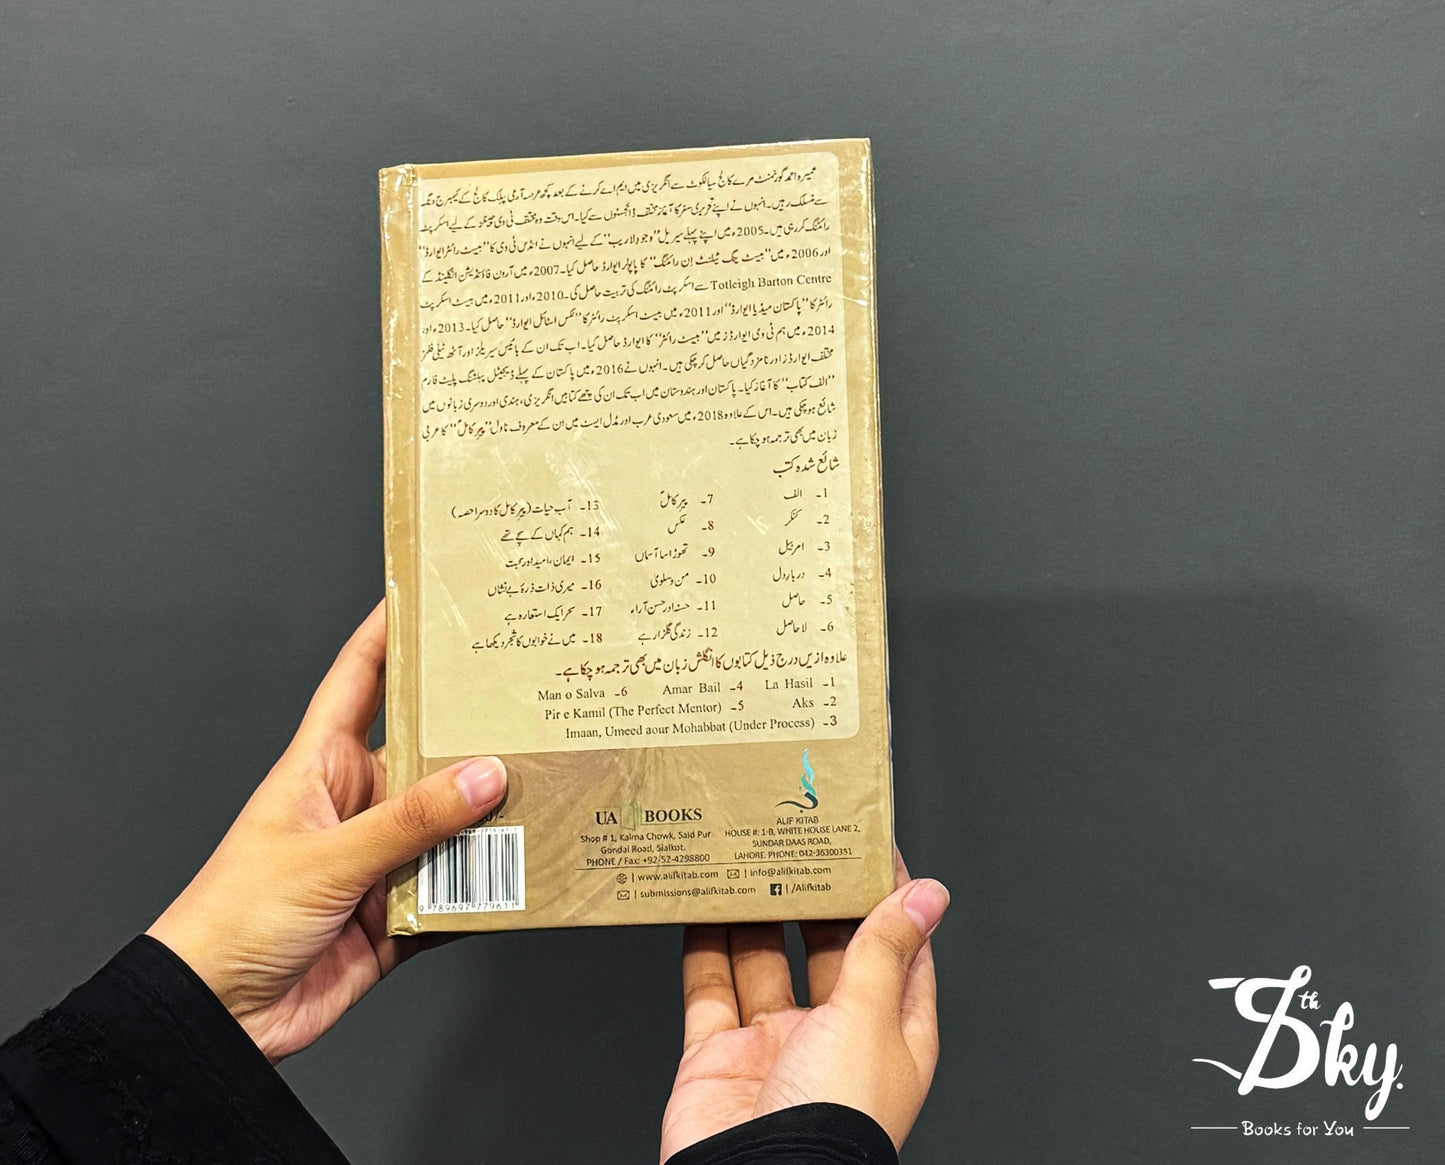 عمیرہ احمد گورنمنٹ مرے کالج سیالکوٹ سے انگریزی میں ایم اے کرنے کے بعد کچھ عرصہ آرمی پبلک کالج کے کیمبرج ونگ
سے منسلک رہیں۔ انہوں نے اپنے تحریری سفر کا آغاز مختلف ڈائجسٹوں سے کیا۔ اس وقت وہ مختلف ٹی وی چینلز کے لیے اسکرپٹ
رائٹنگ کر رہی ہیں۔ 2005ء میں اپنے پہلے سیریل ’’وجودِ لاریب‘‘ کے لیے انہوں نے انڈس ٹی وی کا ’’بیسٹ رائٹر ایوارڈ‘‘
اور 2006ء میں ’’بیسٹ ینگ ٹیلنٹ اِن رائٹنگ‘‘ کا پاپولر ایوارڈ حاصل کیا۔ 2007ء میں آرون فاؤنڈیشن انگلینڈ کے
Totleigh Barton Centre سے اسکرپٹ رائٹنگ کی تربیت حاصل کی۔ 2010ء اور 2011ء میں بیسٹ اسکرپٹ
رائٹر کا ’’پاکستان میڈیا ایوارڈ‘‘ اور 2011ء میں بیسٹ اسکرپٹ رائٹر کا ’’لکس اسٹائل ایوارڈ‘‘ حاصل کیا۔ 2013ء اور
2014ء میں ہم ٹی وی ایوارڈز میں ’’بیسٹ رائٹر‘‘ کا ایوارڈ حاصل کیا۔ اب تک ان کے بائیس سیریلز اور آٹھ ٹیلی فلمز
مختلف ایوارڈز اور نامزدگیاں حاصل کر چکی ہیں۔ انہوں نے 2016ء میں پاکستان کے پہلے ڈیجیٹل پبلشنگ پلیٹ فارم
’’الف کتاب‘‘ کا آغاز کیا۔ پاکستان اور ہندوستان میں اب تک ان کی چھے کتابیں انگریزی، ہندی اور دوسری زبانوں میں
شائع ہو چکی ہیں۔ اس کے علاوہ 2018ء میں سعودی عرب اور مڈل ایسٹ میں ان کے معروف ناول ’’پیرِ کاملؐ‘‘ کا عربی
زبان میں بھی ترجمہ ہو چکا ہے۔
شائع شدہ کتب
1۔ الف 7۔ پیرِ کاملؐ 13۔ آبِ حیات (پیرِ کامل کا دوسرا حصہ)
2۔ کنکر 8۔ عکس 14۔ ہم کہاں کے سچے تھے
3۔ امربیل 9۔ تھوڑا سا آسماں 15۔ ایمان، امید اور محبت
4۔ دربارِ دل 10۔ من و سلویٰ 16۔ میری ذات ذرۂ بے نشاں
5۔ حاصل 11۔ حسنہ اور حسن آراء 17۔ سحر ایک استعارہ ہے
6۔ لاحاصل 12۔ زندگی گلزار ہے 18۔ میں نے خوابوں کا شجر دیکھا ہے
علاوہ ازیں درج ذیل کتابوں کا انگلش زبان میں بھی ترجمہ ہو چکا ہے۔
1۔ La Hasil 4۔ Amar Bail 6۔ Man o Salva
2۔ Aks 5۔ Pir e Kamil (The Perfect Mentor)
3۔ Imaan, Umeed aour Mohabbat (Under Process)
UA BOOKS
Shop # 1, Kalma Chowk, Said Pur
Gondal Road, Sialkot.
PHONE / Fax: +92-52-4298800
ALIF KITAB
HOUSE #: 1-B, WHITE HOUSE LANE 2,
SUNDAR DAAS ROAD,
LAHORE. PHONE: 042-36300351
| www.alifkitab.com | info@alifkitab.com
| submissions@alifkitab.com | /Alifkitab
9 789697 779611
7th Sky.
Books for You